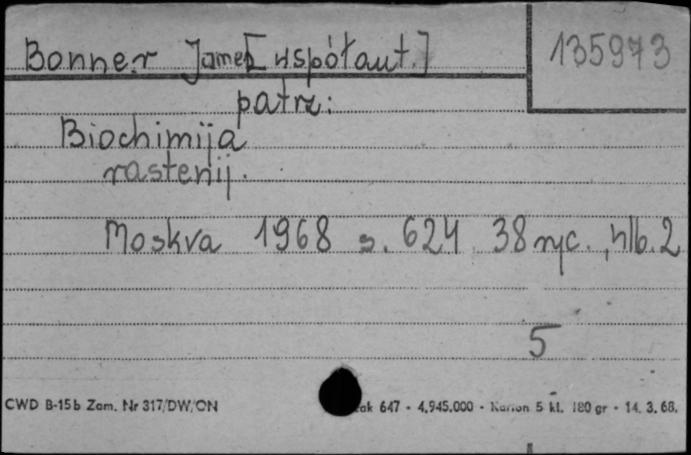 Bonner James [współaut.] 135973
patrz:
Biochimija
rastenij.
Moskva 1968 s. 624 38 ryc., nlb. 2
5
CWD B-15b Zam. Nr 317/DW/ON ak 647 - 4.945.000 - Karton 5 kl. 180 gr - 14. 3. 68.